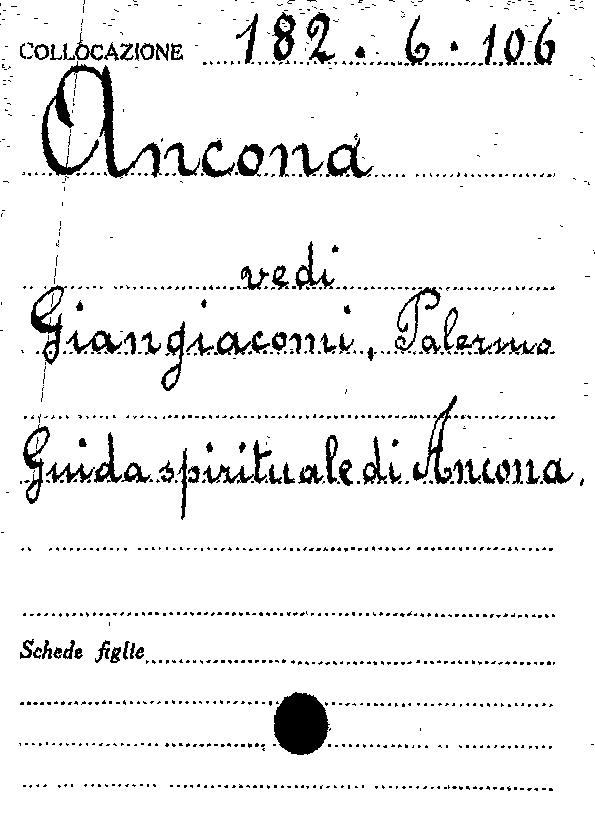 COLLOCAZIONE 182.6.106
Ancona
vedi
Giangiacomi, Palermo
Guida spirituale di Ancona.
Schede figlie